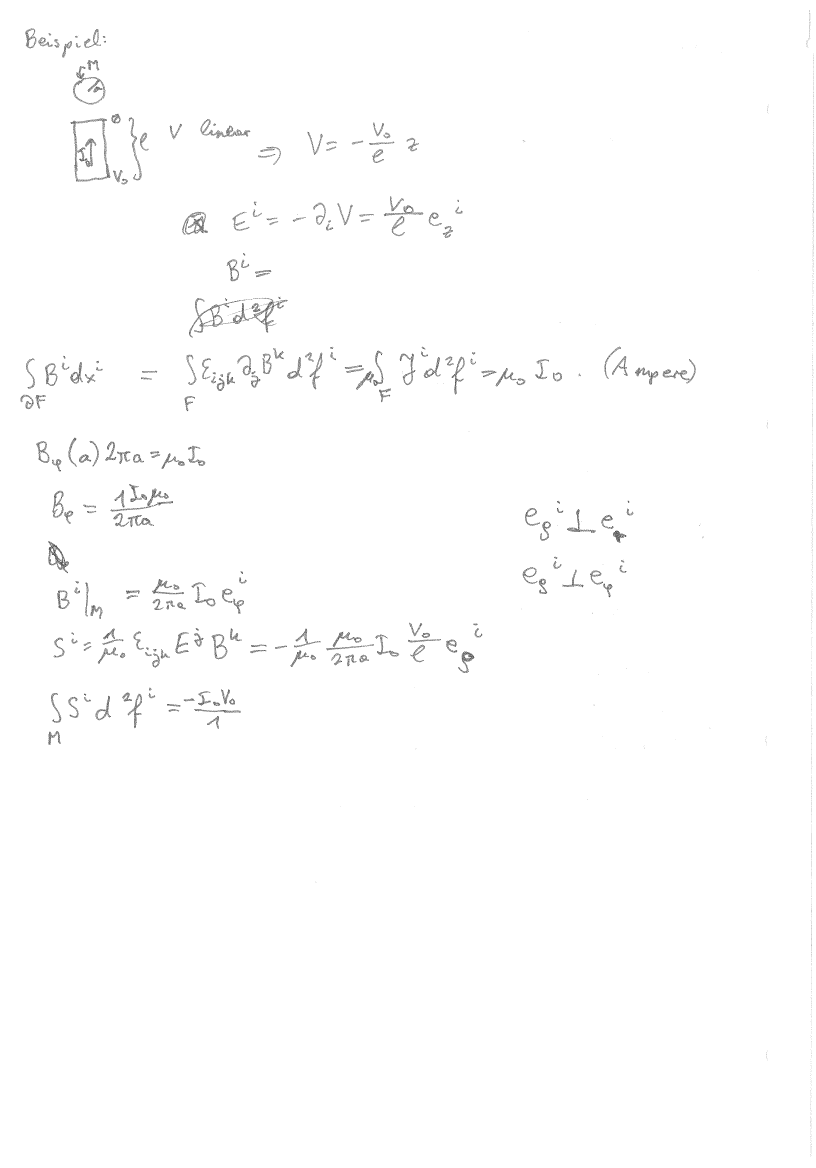 Beispiel:
M
a
0
I₀ } l V linear ⇒ V = - V₀/l z
V₀
Eⁱ = - ∂ᵢV = V₀/l e_zⁱ
Bⁱ =
∫_∂F Bⁱdxⁱ = ∫_F ε_ijk ∂_j Bᵏ d²fⁱ = μ₀ ∫_F Jⁱd²fⁱ = μ₀ I₀. (Ampere)
B_φ(a) 2πa = μ₀I₀
B_φ = 1 I₀ μ₀/2πa
e_ρⁱ ⊥ e_rⁱ
e_ρⁱ ⊥ e_φⁱ
Bⁱ|_M = μ₀/2πa I₀ e_φⁱ
Sⁱ = 1/μ₀ ε_ijk Eʲ Bᵏ = - 1/μ₀ μ₀/2πa I₀ V₀/l e_ρⁱ
∫_M Sⁱ d²fⁱ = -I₀V₀/1